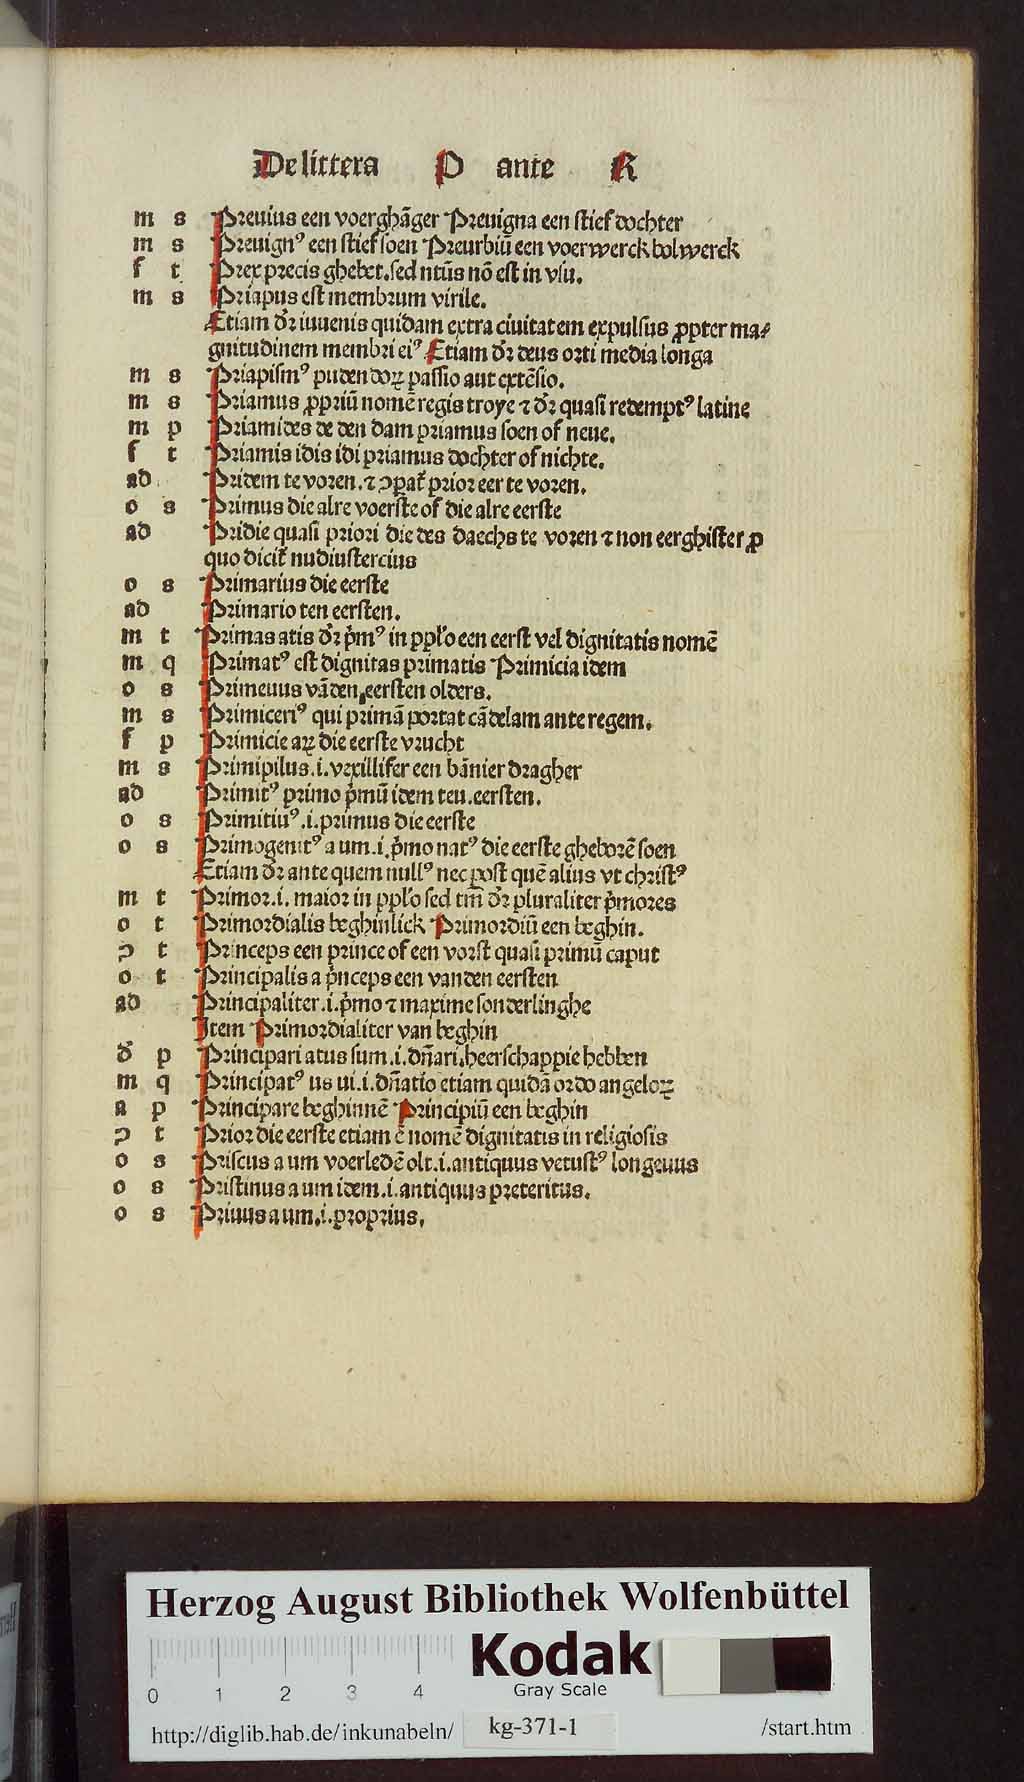 De littera P ante R
m s Preuius een voerghāger Preuigna een stief dochter
m s Preuignꝰ een stief soen Preurbiū een voerwerck bolwerck
f t Prex precis ghebet. sed ntūs nō est in vsu.
m s Priapus est membrum virile.
Etiam dr̄ iuuenis quidam extra ciuitatem expulsus ꝓpter ma⸗
gnitudinem membri eiꝰ Etiam dr̄ deus orti media longa
m s Priapismꝰ pudendoꝝ passio aut extēsio.
m s Priamus ꝓpriū nomē regis troye ⁊ dr̄ quasi redemptꝰ latine
m p Priamides de den dam priamus soen of neue.
f t Priamis idis idi priamus dochter of nichte.
ad Pridem te voren. ⁊ ↄparat̄ prior eer te voren.
o s Primus die alre voerste of die alre eerste
ad Pridie quasi priori die des daechs te voren ⁊ non eerghister ꝓ
quo dicit̄ nudiustercius
o s Primarius die eerste
ad Primario ten eersten.
m t Primas atis dr̄ p̄mꝰ in ppl̄o een eerst vel dignitatis nomē
m q Primatꝰ est dignitas primatis Primicia idem
o s Primeuus vāden eersten olders.
m s Primiceriꝰ qui primā portat cādelam ante regem.
f p Primicie aꝝ die eerste vrucht
m s Primipilus .i. vexillifer een bānier dragher
ad Primitꝰ primo p̄mū idem teu. eersten.
o s Primitiuꝰ .i. primus die eerste
o s Primogenitꝰ a um .i. p̄mo natꝰ die eerste gheborē soen
Etiam dr̄ ante quem nullꝰ nec post quē alius vt christꝰ
m t Primor .i. maior in ppl̄o sed tm̄ dr̄ pluraliter p̄mores
o t Primordialis beghinlick Primordiū een beghin.
ↄ t Princeps een prince of een vorst quasi primū caput
o t Principalis a p̄nceps een vanden eersten
ad Principaliter .i. p̄mo ⁊ maxime sonderlinghe
Item Primordialiter van beghin
d̄ p Principari atus sum .i. dn̄ari. heerschappie hebben
m q Principatꝰ us ui .i. dn̄atio etiam quidā ordo angeloꝝ
a p Principare beghinnē Principiū een beghin
ↄ t Prior die eerste etiam ē nomē dignitatis in religiosis
o s Priscus a um voerledē olt .i. antiquus vetustꝰ longeuus
o s Pristinus a um idem .i. antiquus preteritus.
o s Priuus a um .i. proprius.
Herzog August Bibliothek Wolfenbüttel
Kodak
Gray Scale
0 1 2 3 4
http://diglib.hab.de/inkunabeln/ kg-371-1 /start.htm